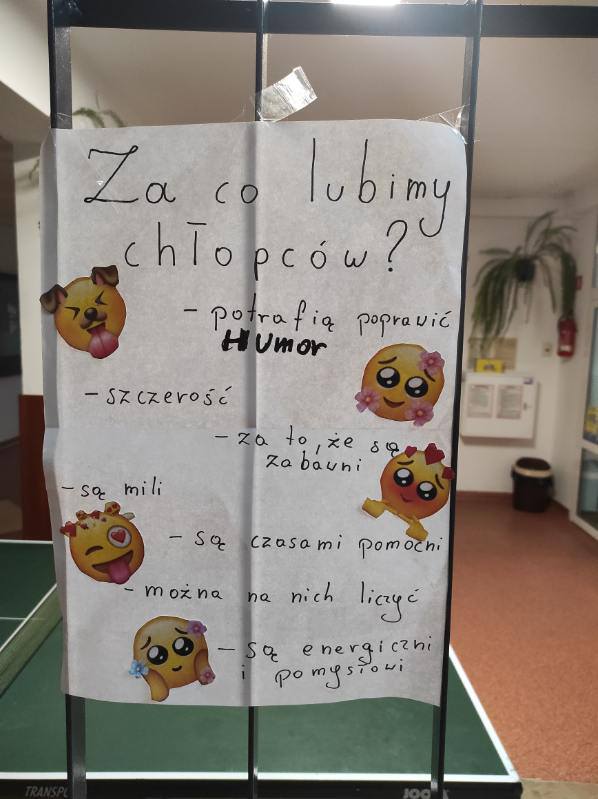 Za co lubimy
chłopców?
- potrafią poprawić
Humor
- szczerość
- za to, że są
zabawni
- są mili
- są czasami pomocni
- można na nich liczyć
- są energiczni
i pomysłowi